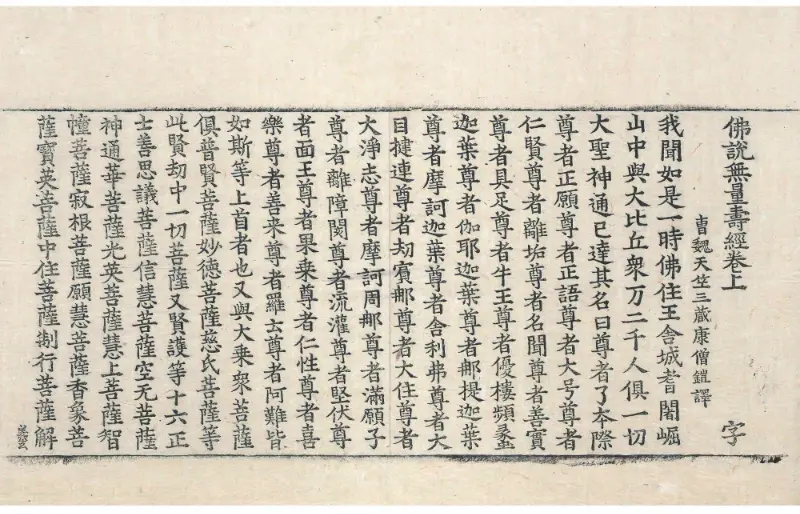 佛說無量壽經卷上 字
曹魏天竺三蔵康僧鎧譯
我聞如是一時佛住王舍城耆闍崛
山中與大比丘衆万二千人俱一切
大聖神通已達其名曰尊者了夲際
尊者正願尊者正語尊者大号尊者
仁賢尊者離垢尊者名聞尊者善實
尊者具足尊者牛王尊者優樓頻蠡
迦葉尊者伽耶迦葉尊者那提迦葉
尊者摩訶迦葉尊者舍利弗尊者大
目揵連尊者劫賓那尊者大住尊者
大淨志尊者摩訶周那尊者滿願子
尊者離障閡尊者流灌尊者堅伏尊
者面王尊者果乗尊者仁性尊者喜
樂尊者善来尊者羅云尊者阿難皆
如斯等上首者也又與大乗衆菩薩
俱普賢菩薩妙德菩薩慈氏菩薩等
此賢劫中一切菩薩又賢護等十六正
士善思議菩薩信慧菩薩空无菩薩
神通華菩薩光英菩薩慧上菩薩智
幢菩薩寂根菩薩願慧菩薩香象菩
薩寶英菩薩中住菩薩制行菩薩解